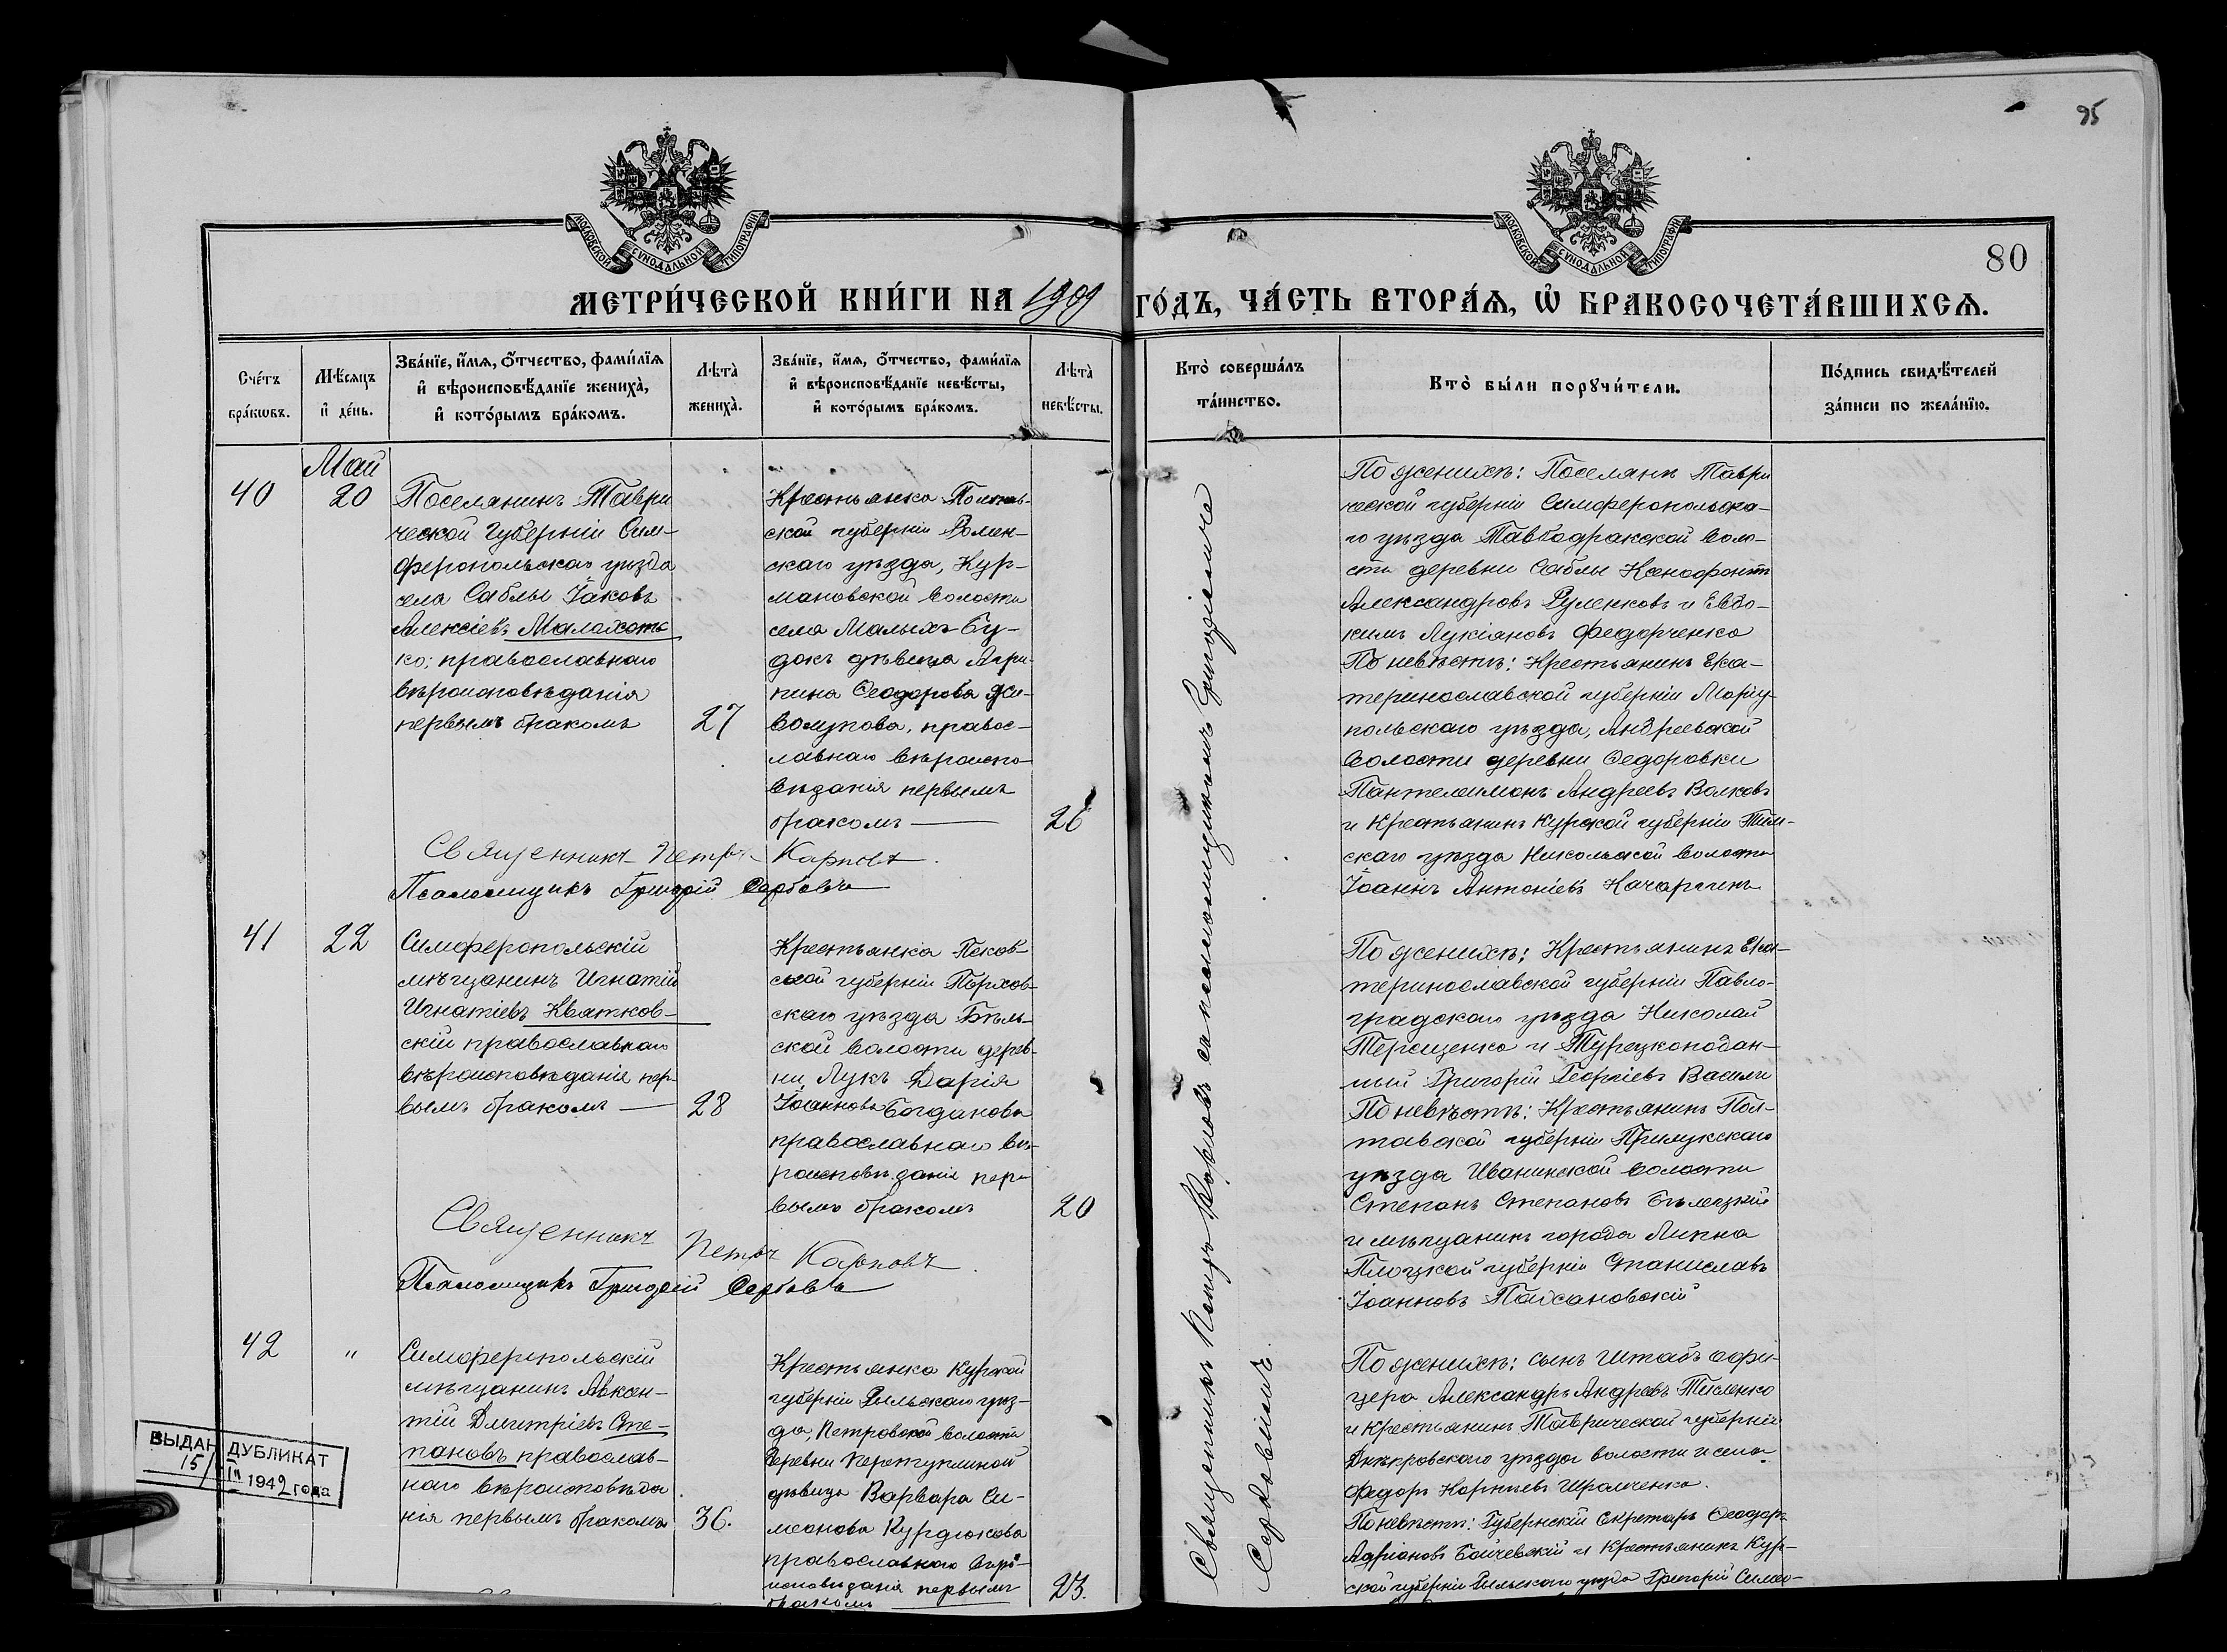 95
МОСКОВСКОЙ СУНОДАЛЬНОЙ ТИПОГРАФІИ
МОСКОВСКОЙ СУНОДАЛЬНОЙ ТИПОГРАФІИ
80
МЕТРИ́ЧЕСКОЙ КНИ́ГИ НА 1909 ГО́ДЪ, ЧА́СТЬ ВТОРА́Ѧ, Ѽ БРАКОСОЧЕТА́ВШИХСѦ.
Сче́тъ
бра́кѡвъ.
Мѣ́сѧцъ
и҆ де́нь.
Зва́нїе, и҆́мѧ, ѻ҆́тчество, фами́лїѧ
и҆ вѣроисповѣ́данїе жениха̀,
и҆ кото́рымъ бра́комъ.
Лѣта̀
жениха̀.
Зва́нїе, и҆́мѧ, ѻ҆́тчество, фами́лїѧ
и҆ вѣроисповѣ́данїе невѣ́сты,
и҆ кото́рымъ бра́комъ.
Лѣта̀
невѣ́сты.
Кто̀ соверша́лъ
та́инство.
Кто̀ бы́ли порꙋчи́тели.
По́дпись свидѣ́телей
за́писи по жела́нїю.
Май
40
20
Поселянинъ Таври
ческой Губерніи Сим-
феропольскаго уѣзда
села Саблы Іаковъ
Алексіевъ Малахать
ко; православнаго
вѣроисповѣданія
первымъ бракомъ
27
Крестьянка Полтав-
ской губерніи Ромен-
скаго уѣзда, Кур-
мановской волости
села Малыхъ Бу-
докъ дѣвица Агри-
пина Ѳеодорова
православнаго вѣроиспо-
вѣданія первымъ
бракомъ
26
Священникъ Петръ Карповъ.
Псаломщикъ Григорій Сербовъ
По женихѣ: Поселяне Таври
ческой губерніи Симферопольска-
го уѣзда волос-
сти деревни Саблы Ксенофонтъ
Александровъ Руленковъ и Евдо-
кимъ Лукіяновъ Федорченко
По невѣстѣ: Крестьянинъ Ека-
теринославской губерніи Маріу-
польскаго уѣзда, Андреевской
волости деревни Ѳедоровки
Пантелеимонъ Андреевъ Волковъ
и Крестьянинъ Курской губерніи Тим-
скаго уѣзда Никольской волости
Іоаннъ Антоніевъ
41
22
Симферопольскій
мѣщанинъ Игнатій
Игнатіевъ Квятков-
скій православнаго
вѣроисповѣданія пер-
вымъ бракомъ
28
Крестьянка Псков-
ской губерніи Порхов-
скаго уѣзда Бѣль-
ской волости дерев-
ни Лукъ Дарія
Іоаннова Богданова
православнаго вѣ-
роисповѣданія пер-
вымъ бракомъ
20
Священникъ Петръ Карповъ.
Псаломщикъ Григорій Сербовъ
По женихѣ: Крестьянинъ Ека-
теринославской губерніи Павло-
градскаго уѣзда Николай
Терещенко и Турецкоподан-
ный Григорій Георгіевъ Васили
По невѣстѣ: Крестьянинъ Пол-
тавской губерніи Прилукскаго
уѣзда Иваницкой волости
Степанъ Степановъ Бѣлецкій
и мѣщанинъ города Липна
Плоцкой губерніи Станиславъ
Іоанновъ
42
"
Симферопольскій
мѣщанинъ Авксен-
тій Дмитріевъ Сте-
пановъ православ-
наго вѣроисповѣда
нія первымъ бракомъ
36.
Крестьянка Курской
губерніи Рыльскаго уѣз-
да, Петровской волости
деревни
дѣвица Варвара Си-
меонова Курдюкова
православнаго вѣро-
исповѣданія первымъ
бракомъ
23.
По женихѣ: сынъ Штабъ офи-
цера Александръ Андреевъ Тисленко
и Крестьянинъ Таврической губерніи
Днѣпровскаго уѣзда волости и села
Федоръ Корніевъ
По невѣстѣ: Губернскій Секретарь Ѳеодоръ
Адріановъ Бойчевскій и Крестьянинъ Кур-
ской губерніи Рыльскаго уѣзда Григорій Симео-
Священникъ Петръ Карповъ съ псаломщикомъ Григоріемъ
Сербовымъ.
ВЫДАН ДУБЛИКАТ
15/III 1942 года